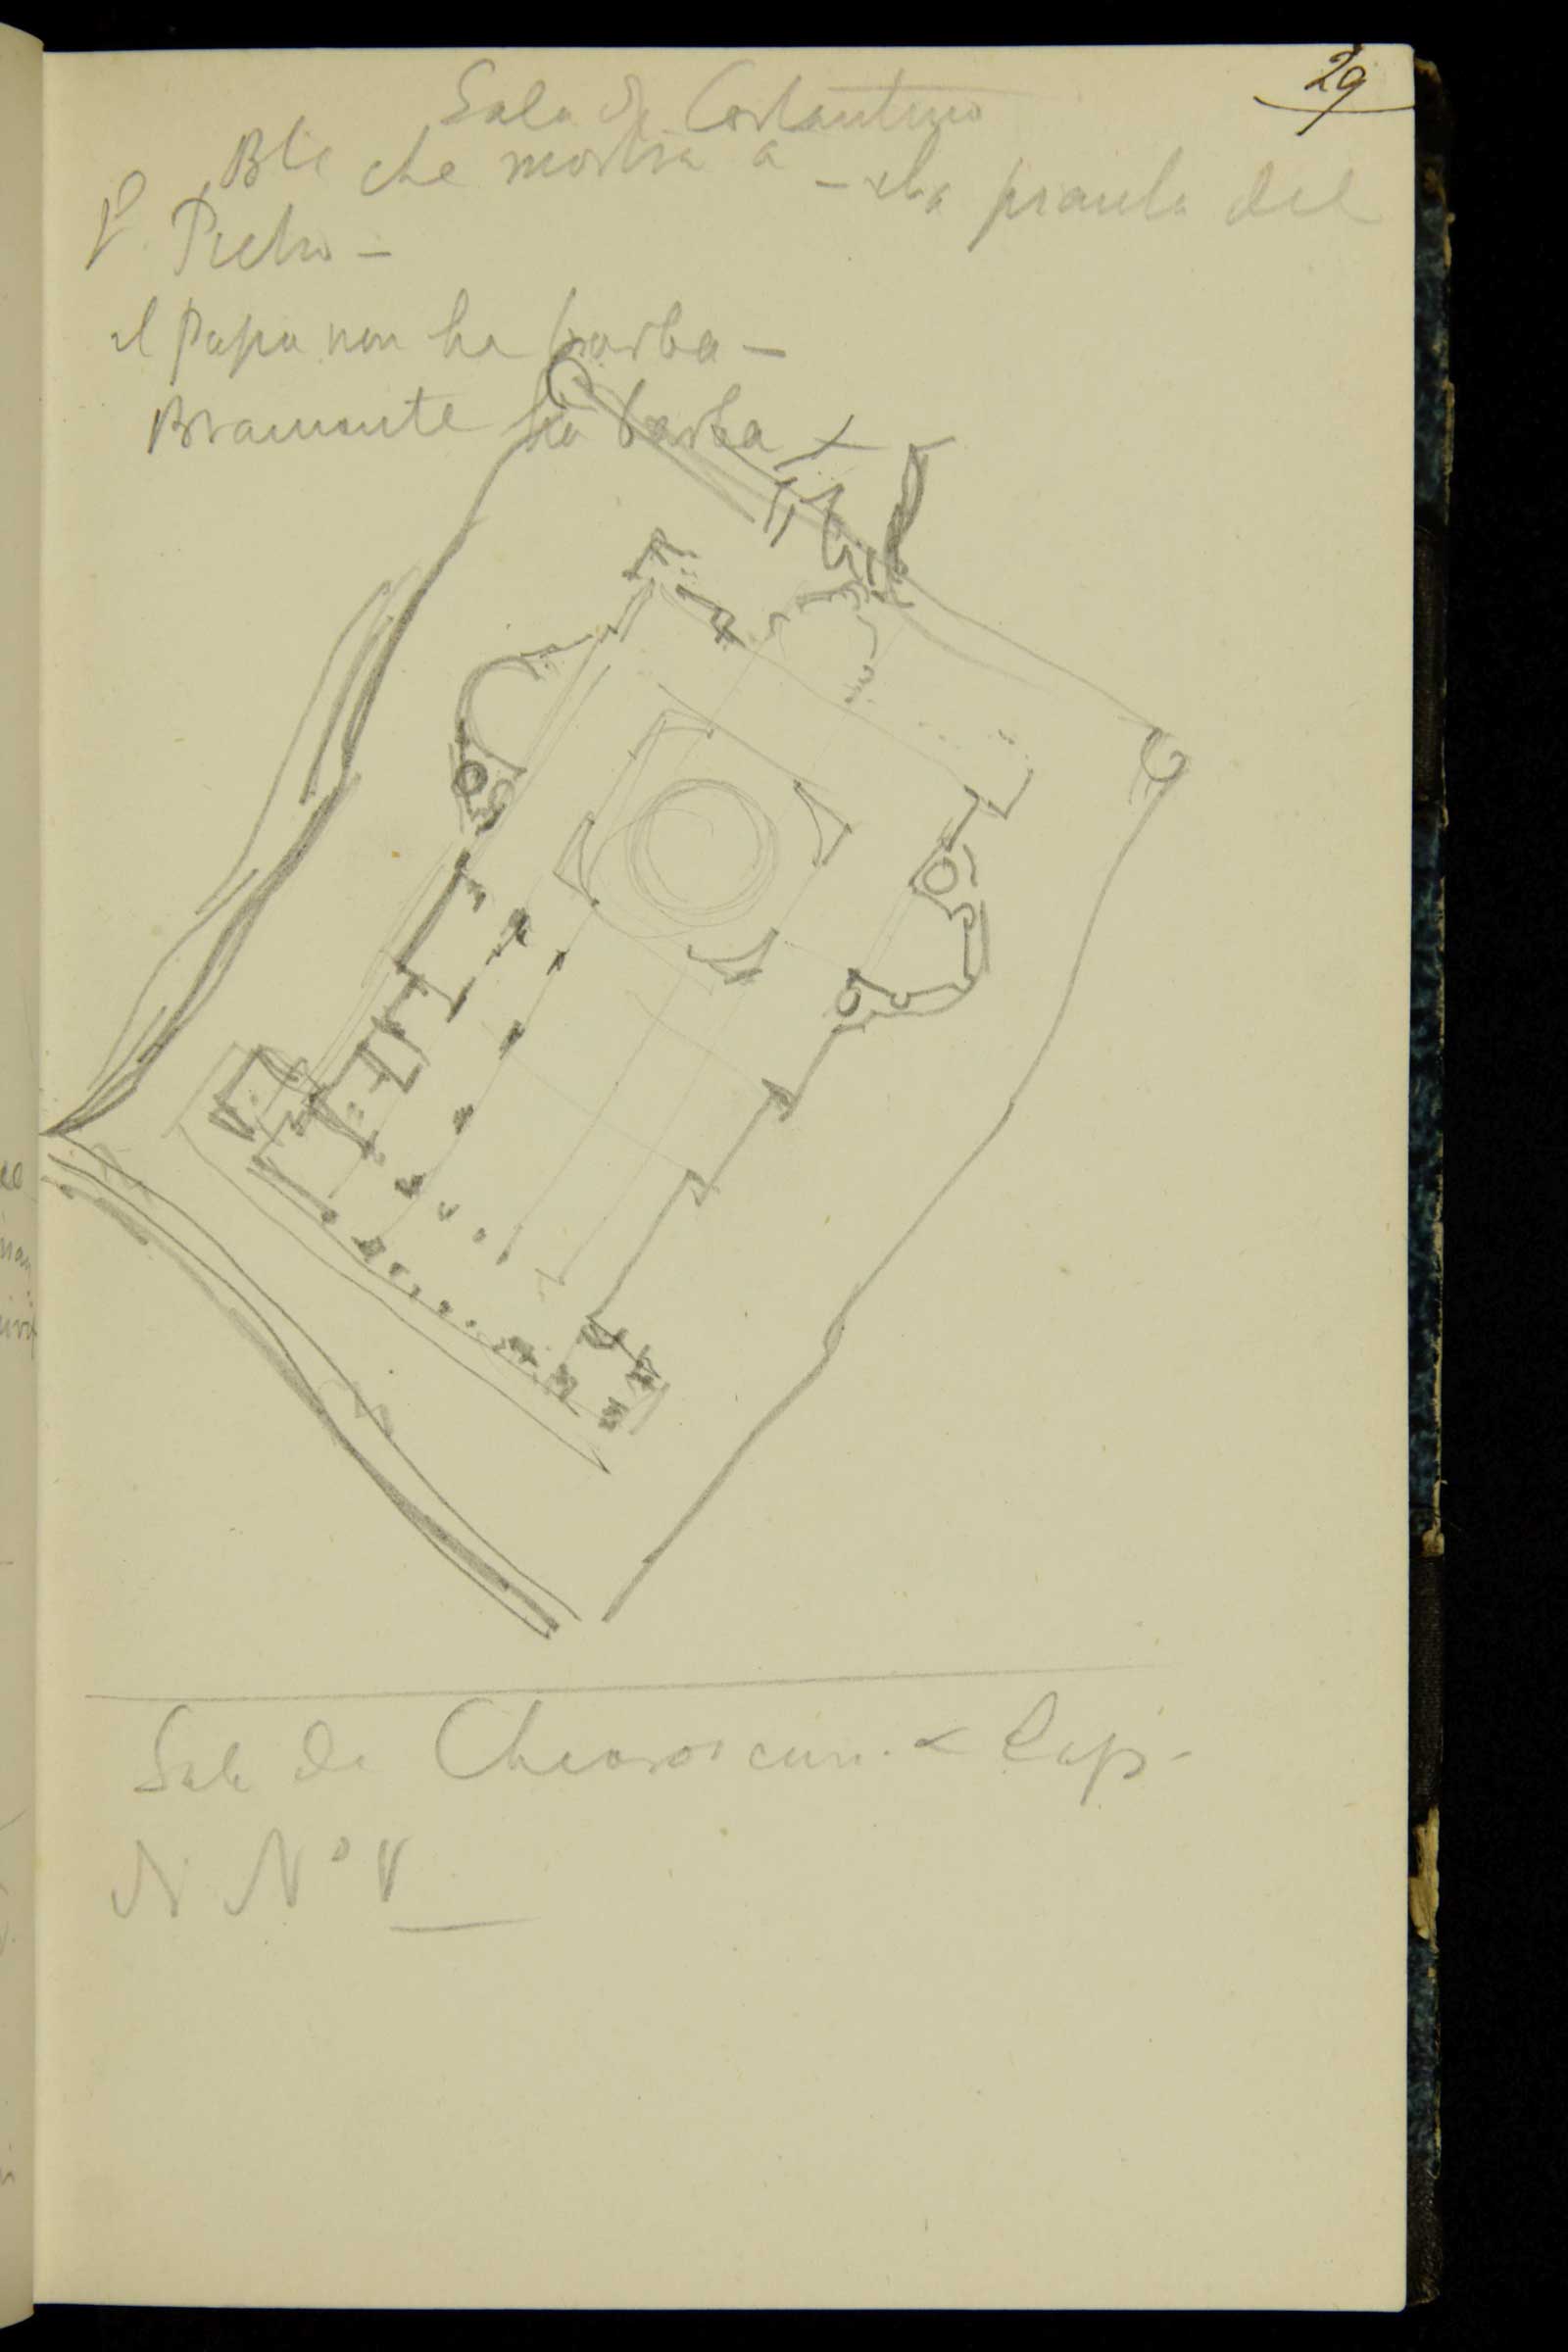 29
Sala di Costantino
che mostra a – la pianta del
S. Pietro –
il Papa non ha barba –
Bramante ha barba
Sala de Chiaroscuri.
N N° V